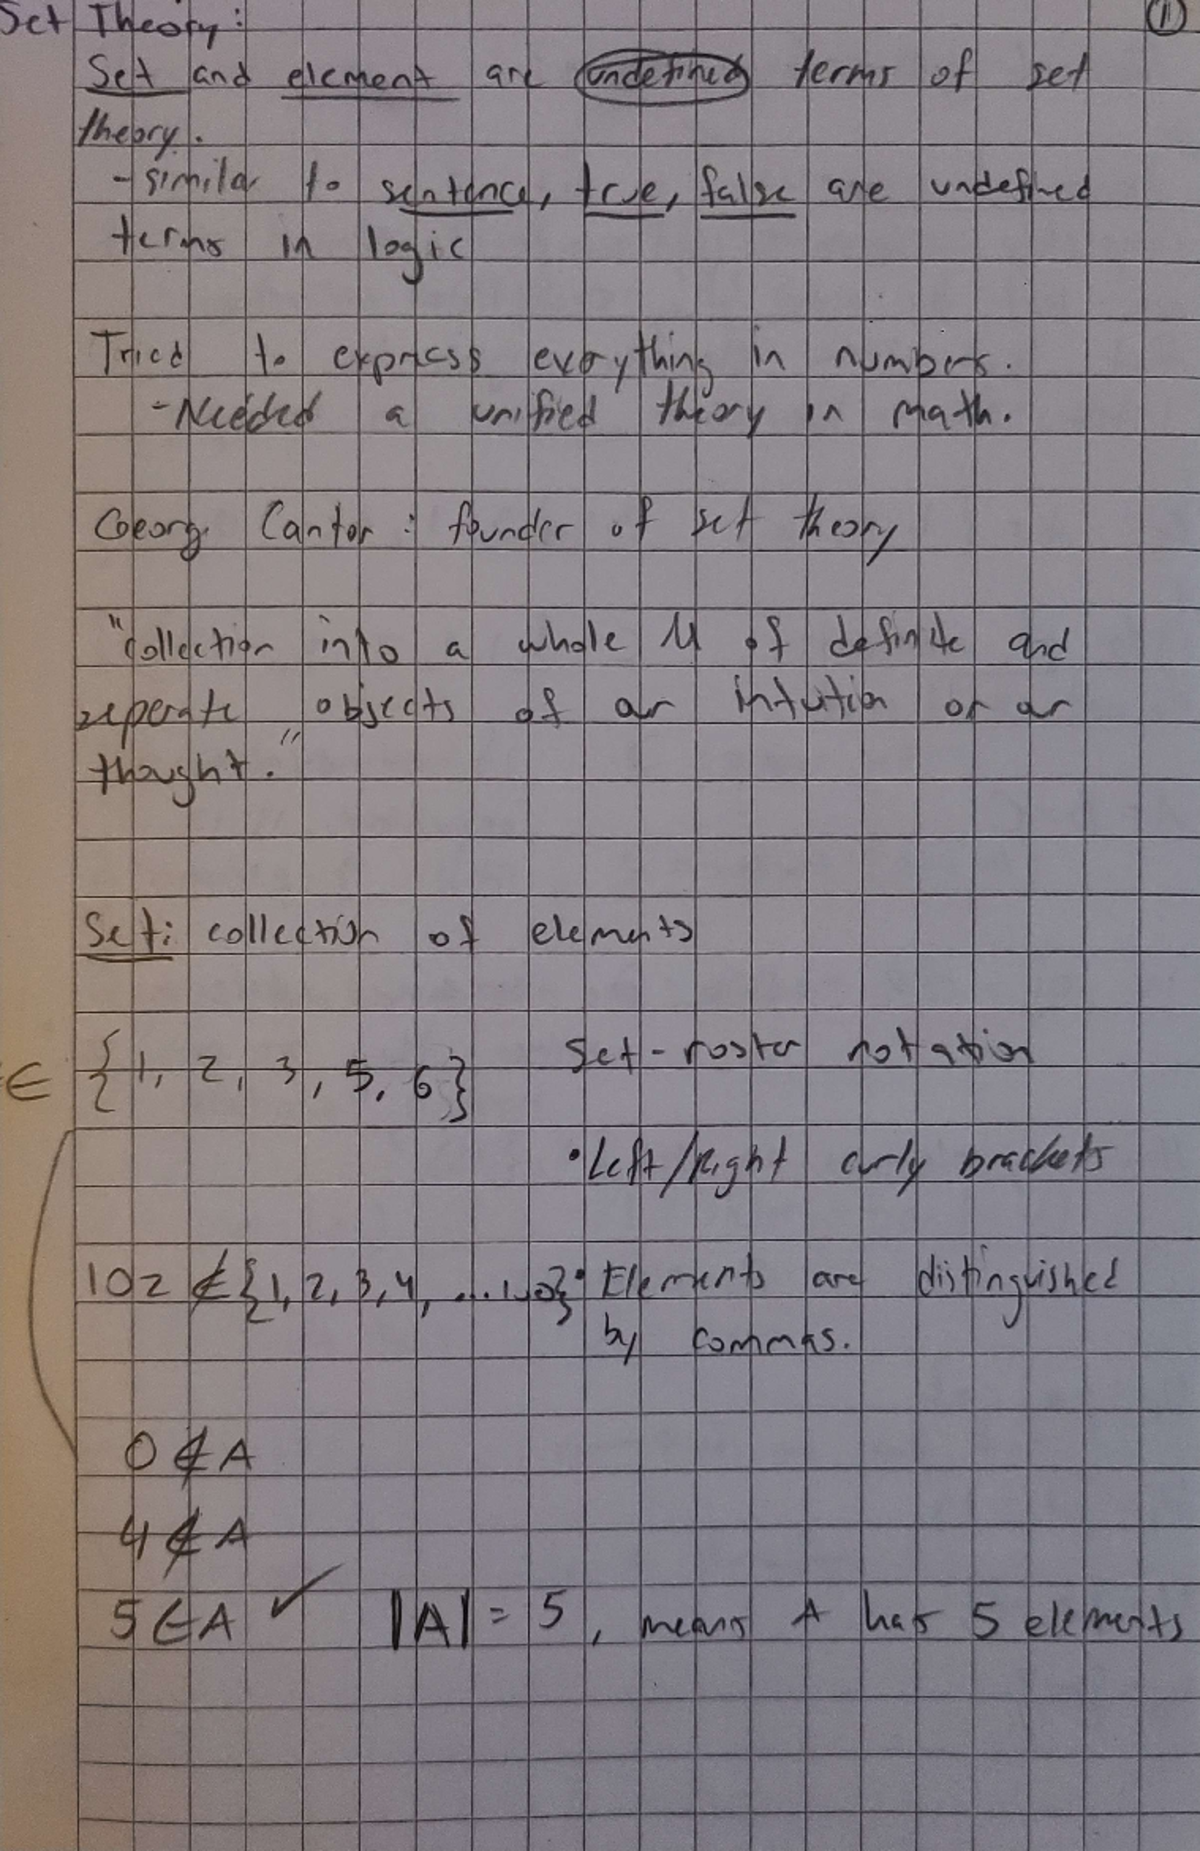 Set Theory:
①
Set and element are undefined terms of set
theory.
- similar to sentence, true, false are undefined
terms in logic
Tried to express everything in numbers.
- Needed a unified theory in math.
Georg Cantor: founder of set theory
"Collection into a whole M of definite and
seperate objects of an intuition or an
thought."
Set: collection of elements
∈ {1, 2, 3, 5, 6} Set-roster notation
• Left/Right curly brackets
102 ∉ {1, 2, 3, 4, ... 100} • Elements are distinguished
by commas.
0 ∉ A
4 ∉ A
5 ∈ A ✓ |A| = 5, means A has 5 elements